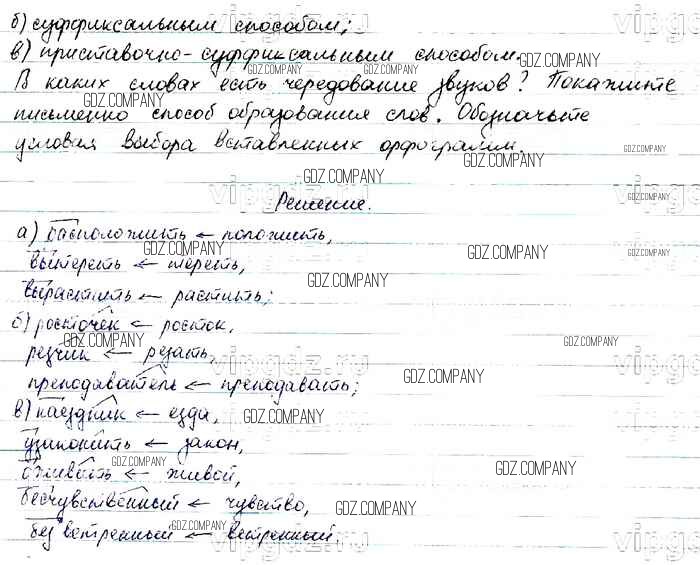 б) суффиксальным способом;
в) приставочно-суффиксальным способом.
В каких словах есть чередование звуков? Покажите
письменно способ образования слов. Обозначьте
условия выбора вставленных орфограмм.
Решение.
а) расположить ← положить,
вытереть ← тереть,
вырастить ← растить;
б) росточек ← росток,
резчик ← резать,
преподаватель ← преподавать;
в) наездник ← езда,
узаконить ← закон,
оживать ← живой,
бесчувственный ← чувство,
безветренный ← ветренный.